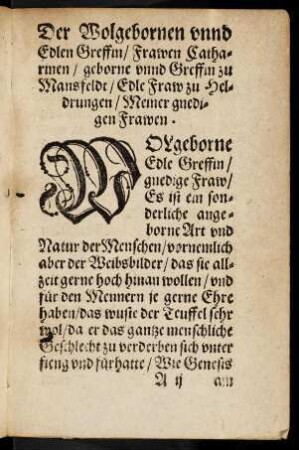 Der Wolgebornen vnnd
Edlen Greffin / Frawen Catha-
rinen / geborne vnnd Greffin zu
Mansfeldt / Edle Fraw zu Hel-
drungen / Meiner gnedi-
gen Frawen.
WOLgeborne
Edle Greffin /
gnedige Fraw /
Es ist ein son-
derliche ange-
borne Art vnd
Natur der Menschen / vornemlich
aber der Weibsbilder / das sie all-
zeit gerne hoch hinan wollen / vnd
für den Mennern je gerne Ehre
haben / das wuste der Teuffel sehr
wol / da er das gantze menschliche
Geschlecht zu verderben sich vnter
fieng vnd fürhatte / Wie Genesis
A ij am